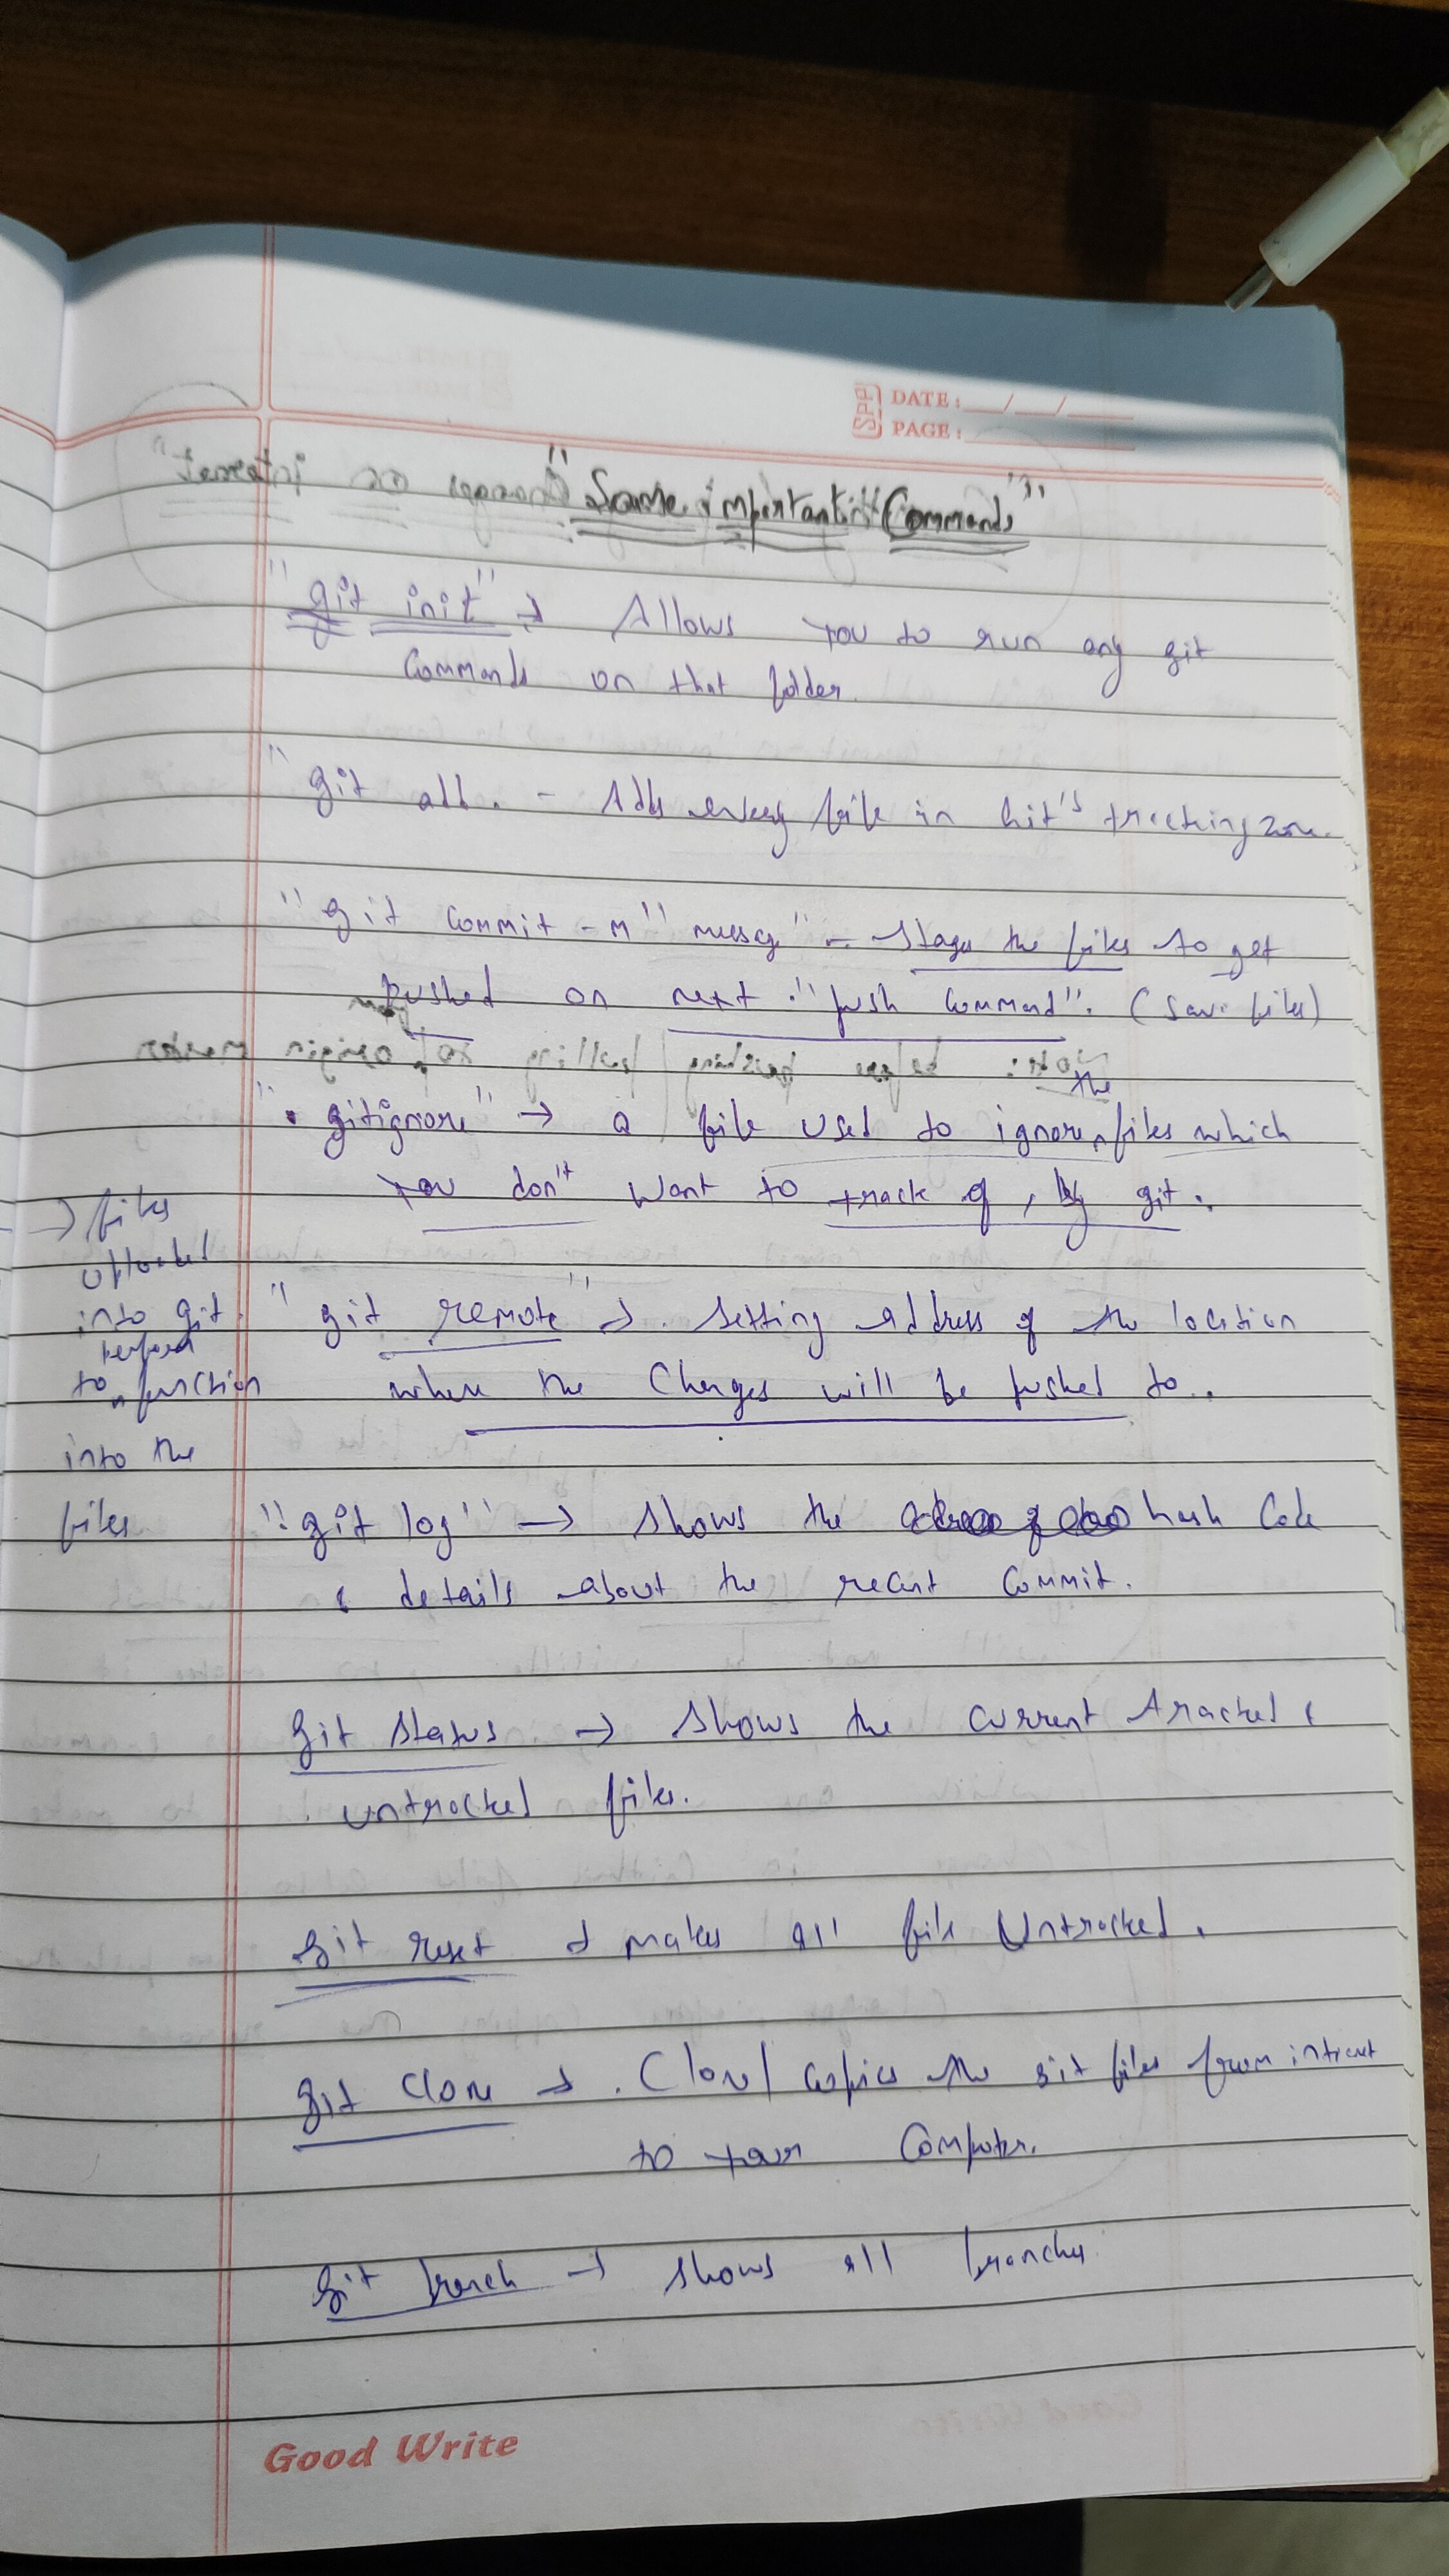 DATE: __/__/__
PAGE:
"Some important Commands"
"git init" → Allows you to run any git
Commands on that folder.
" git add. - Adds every file in Git's tracking zone.
"git Commit -m" " - stages the files to get
pushed on next "push Command". (Save files)
the
".gitignore" → a file used to ignore files which
you don't want to track of, by git.
"git remote" → Setting address of the location
where the Changes will be pushed to.
→ files
uploaded
into git
to function
into the
files
"git log" → Shows the hash Code
& details about the recent Commit.
git status → Shows the Current tracked &
untracked files.
git reset → makes all file Untracked.
git Clone → Clone/ Copies the git files from internet
to your Computer.
git branch → shows all branches
Good Write